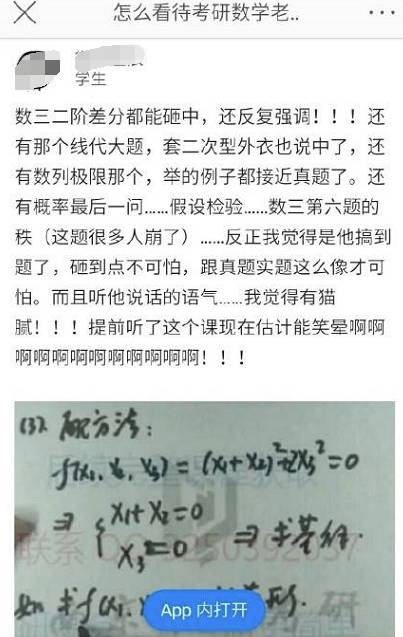 怎么看待考研数学老..
学生
数三二阶差分都能砸中，还反复强调！！！还
有那个线代大题，套二次型外衣也说中了，还
有数列极限那个，举的例子都接近真题了。还
有概率最后一问……假设检验……数三第六题的
秩（这题很多人崩了）……反正我觉得是他搞到
题了，砸到点不可怕，跟真题实题这么像才可
怕。而且听他说话的语气……我觉得有猫
腻！！！提前听了这个课现在估计能笑晕啊啊
啊啊啊啊啊啊啊啊啊啊啊！！！
(3). 配方法：
f(x₁, x₂, x₃) = (x₁+x₂)²+2x₃² = 0
⇒ { x₁+x₂=0
x₃=0 ⇒ 求基础.
联系 QQ
如 求f(x₁,
App 内打开
研